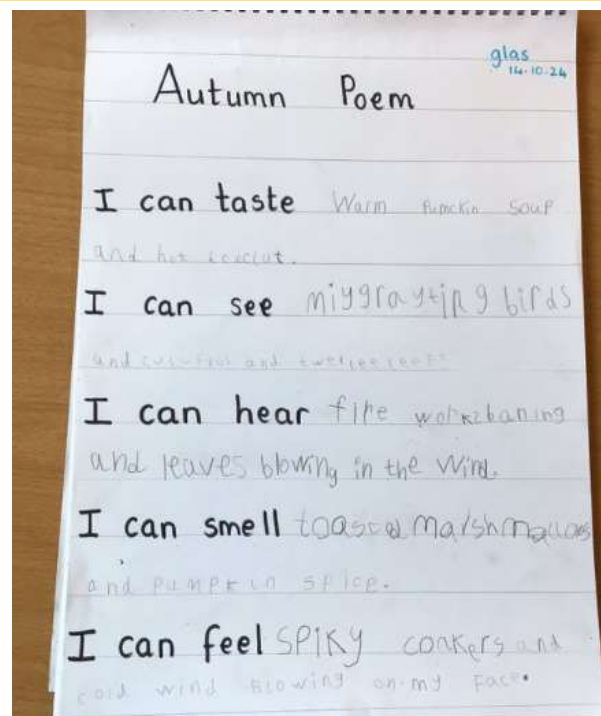 glas
14.10.24
Autumn Poem
I can taste Warm Pumckin Soup
and hot
I can see miygrayting birds
and and
I can hear fire workzbaning
and leaves blowing in the wind.
I can smell toasted marshmallows
and pumpkin spice.
I can feel SPIKY conkers and
cold wind blowing on my face.